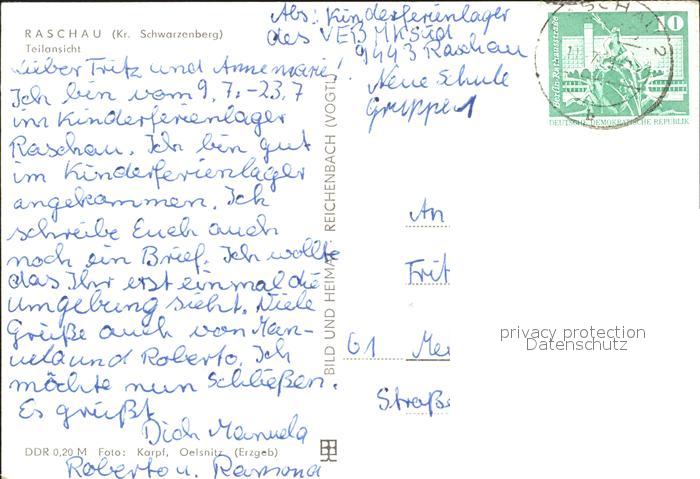 RASCHAU (Kr. Schwarzenberg)
Teilansicht
Lieber Fritz und Annemarie!
Ich bin vom 9.7.-23.7
im Kinderferienlager
Raschau. Ich bin gut
im Kinderferienlager
angekommen. Ich
schreibe Euch auch
noch ein Brief. Ich wollte
das Ihr erst einmal die
Umgebung sieht. Viele
Grüße auch von Man-
uela und Roberto. Ich
möchte nun Schließen.
Es grüßt
Dich Manuela
Roberto u. Ramona
DDR 0,20 M Foto: Karpf, Oelsnitz (Erzgeb)
BILD UND HEIMAT REICHENBACH (VOGTL)
Abs: Kinderferienlager
des VEB MK Süd
9443 Raschau
Neue Schule
Gruppe 1
Berlin, Rathausstraße
10
DEUTSCHE DEMOKRATISCHE REPUBLIK
An
Frit
61 Me
Straße
privacy protection
Datenschutz